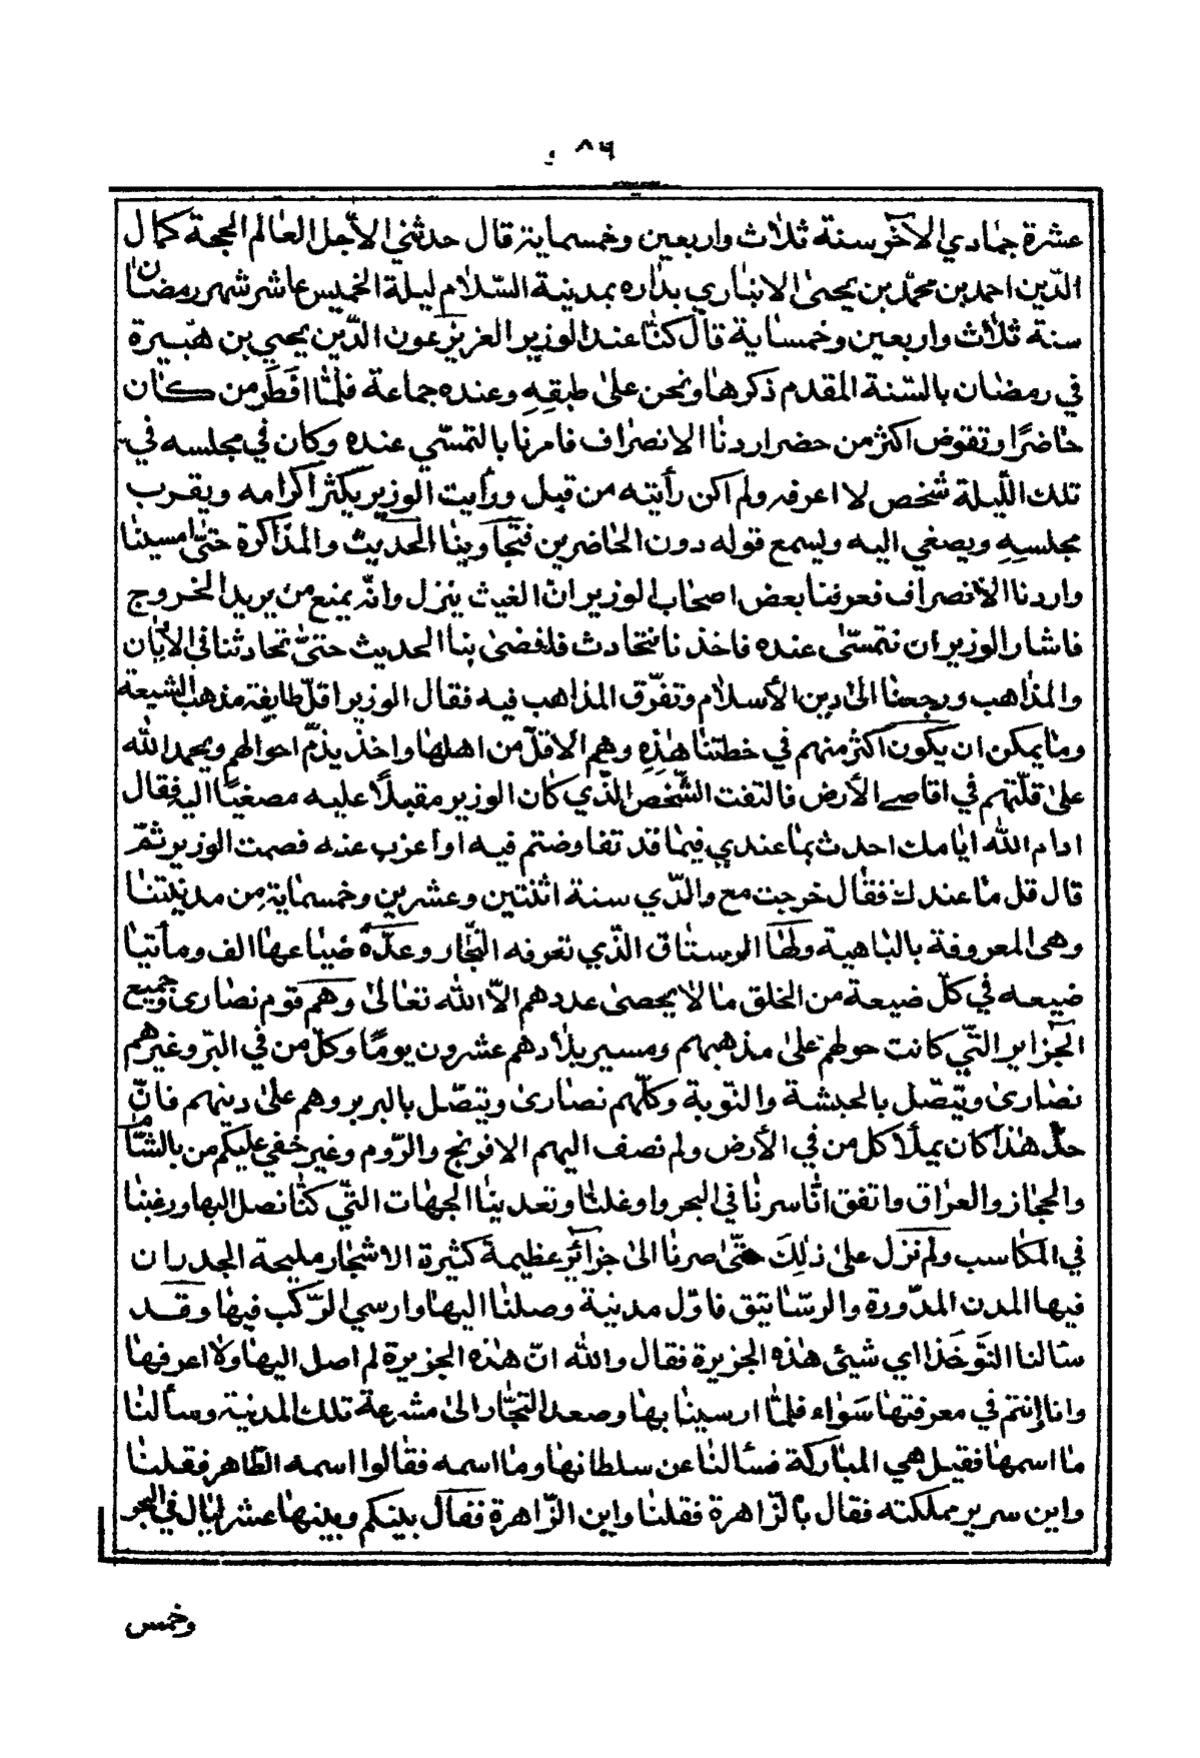 ٨٦
عشرة جمادي الاخر سنة ثلاث واربعين وخمسماية قال حدثني الأجل العالم الحجة كمال
الدّين احمد بن محمّد بن يحيىٰ الانباري بداره بمدينة السّلام ليلة الخميس عاشر شهر رمضان
سنة ثلاث واربعين وخمساية قال كنّا عند الوزير العزيز عون الدّين يحيي بن هبيرة
في رمضان بالسّنة المقدم ذكرها ونحن علىٰ طبقهِ وعنده جماعة فلمّا افطَر من كان
حاضرًا وتقوض اكثر من حضر اردنا الانصراف فامرنا بالتمسّي عنده وكان في مجلسه في
تلك اللّيلة شخص لا اعرفه ولم اكن رأيته من قبل ورأيت الوزير يكثر اكرامه ويقرب
مجلسهِ ويصغي اليه وليسمع قوله دون الحاضرين فتجاوبنا الحديث والمذاكرة حتّىٰ امسينا
واردنا الأنصراف فعرفنا بعض اصحاب الوزير انّ الغيث ينزل وانّه يمنع من يريد الخروج
فاشار الوزير ان نتمسّىٰ عنده فاخذنا نتحادث فافضىٰ بنا الحديث حتّىٰ تحادثنا في الأديان
والمذاهب ورجعنا الىٰ دين الأسلام وتفرّق المذاهب فيه فقال الوزير اقلّ طايفة مذهب الشيعة
وما يمكن ان يكون اكثر منهم في خطتنا هٰذهِ وهم الاقلّ من اهلها واخذ يذمّ احوالهم ويحمد الله
علىٰ قلّتهم في اقاصي الأرض فالتفت الشّخص الّذي كان الوزير مقبلًا عليه مصغيًا اليه فقال
ادام الله ايامك احدث بما عندي فيما قد تفاوضتم فيه او اعزب عنه فصمت الوزير ثمّ
قال قل ما عندك فقال خرجت مع والدّي سنة اثنتين وعشرين وخمسماية من مدينتنا
وهى المعروفة بالباهية ولها الرستاق الّذي تعرفه التّجّار وعدّة ضياعها الف ومأتيا
ضيعه في كلّ ضيعة من الخلق ما لا يحصىٰ عددهم الاّ الله تعالىٰ وهم قوم نصارىٰ وجميع
الجزاير الّتي كانت حولهم علىٰ مذهبهم ومسير بلادهم عشرون يومًا وكلّ من في البرّ وغيرهم
نصارىٰ ويتّصل بالحبشة والنّوبة وكلّهم نصارىٰ ويتصّل بالبربر وهم علىٰ دينهم فانّ
حدّ هٰذا كان يملأ كل من في الأرض ولم نضف اليهم الافرنج والرّوم وغير خفي عليكم من بالشّام
والحجاز والعراق واتفق انّا سرنا في البحر واوغلنا وتعدينا الجهات الّتي كنّا نصل اليها ورغبنا
في المكاسب ولم نزل علىٰ ذٰلِكَ حتّىٰ صرنا الىٰ جزائر عظيمة كثيرة الاشجار مليحة الجدران
فيها المدن المدّورة والرسّاتيق فاوّل مدينة وصلنا اليها وارسي الرّكب فيها وقد
سالنا النّوخَذا اي شيئ هٰذه الجزيرة فقال والله انّ هٰذه الجزيرة لم اصل اليها ولا اعرفها
وانا وانتم في معرفتها سَواء فلمّا ارسينا بها وصعد التّجّار الىٰ مشرعة تلك المدينة وسألنا
ما اسمها فقيل هي المباركة فسالنا عن سلطانها وما اسمه فقالوا اسمه الطّاهر فقلنا
واين سرير مملكته فقال بالزّاهرة فقلنا واين الزّاهرة فقال بينكم وبينها عشر ليال في البحر
وخمس